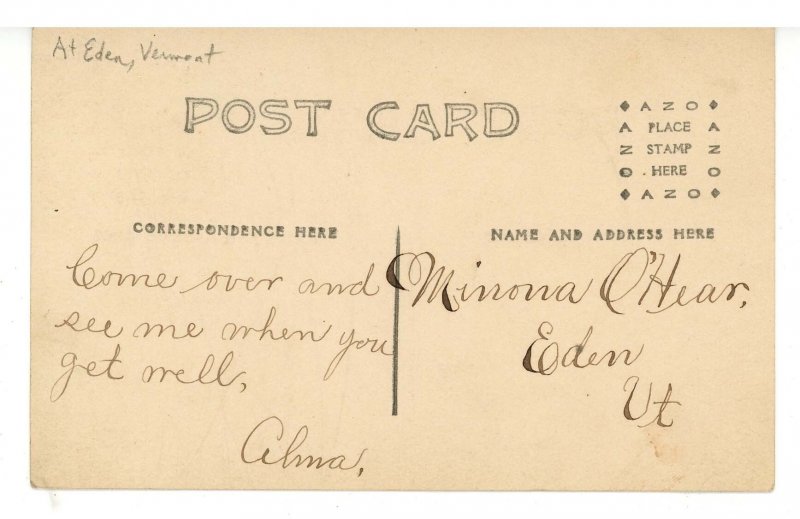 At Eden, Vermont
POST CARD
◆ A Z O ◆
A PLACE A
Z STAMP Z
O HERE O
◆ A Z O ◆
CORRESPONDENCE HERE
NAME AND ADDRESS HERE
Come over and
see me when you
get well,
Alma,
Minona O'Hear,
Eden
Vt